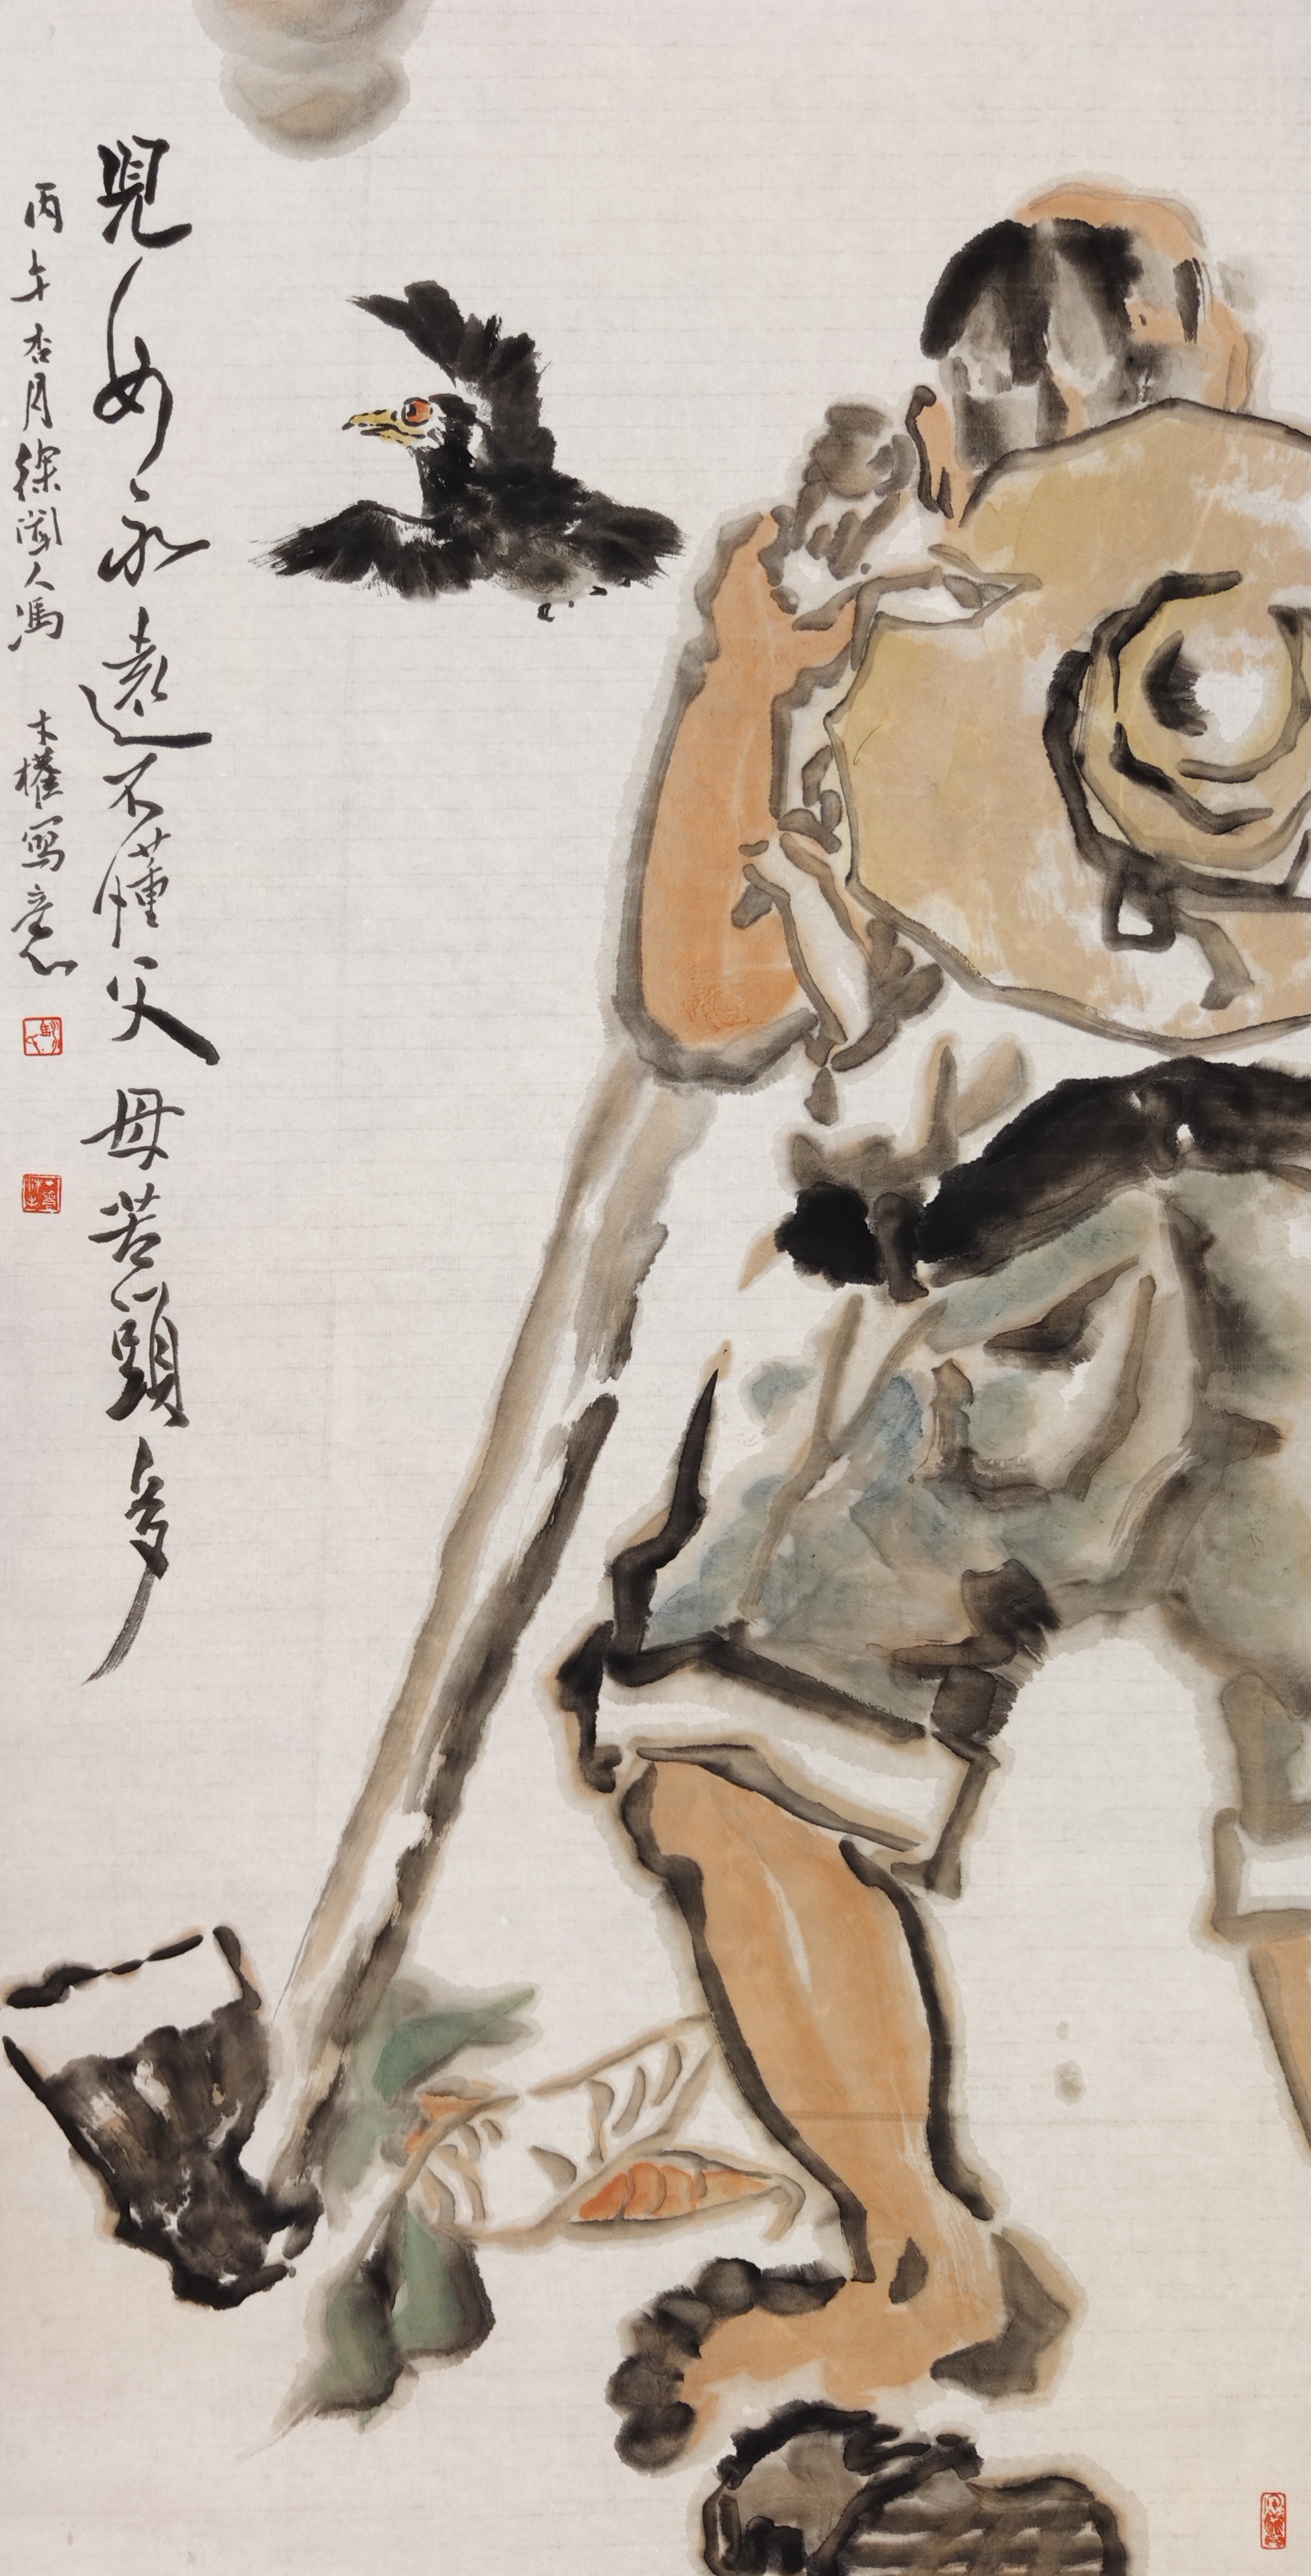 兒女永遠不懂父母苦頭多
丙午杏月徐闻人馮木權寫意